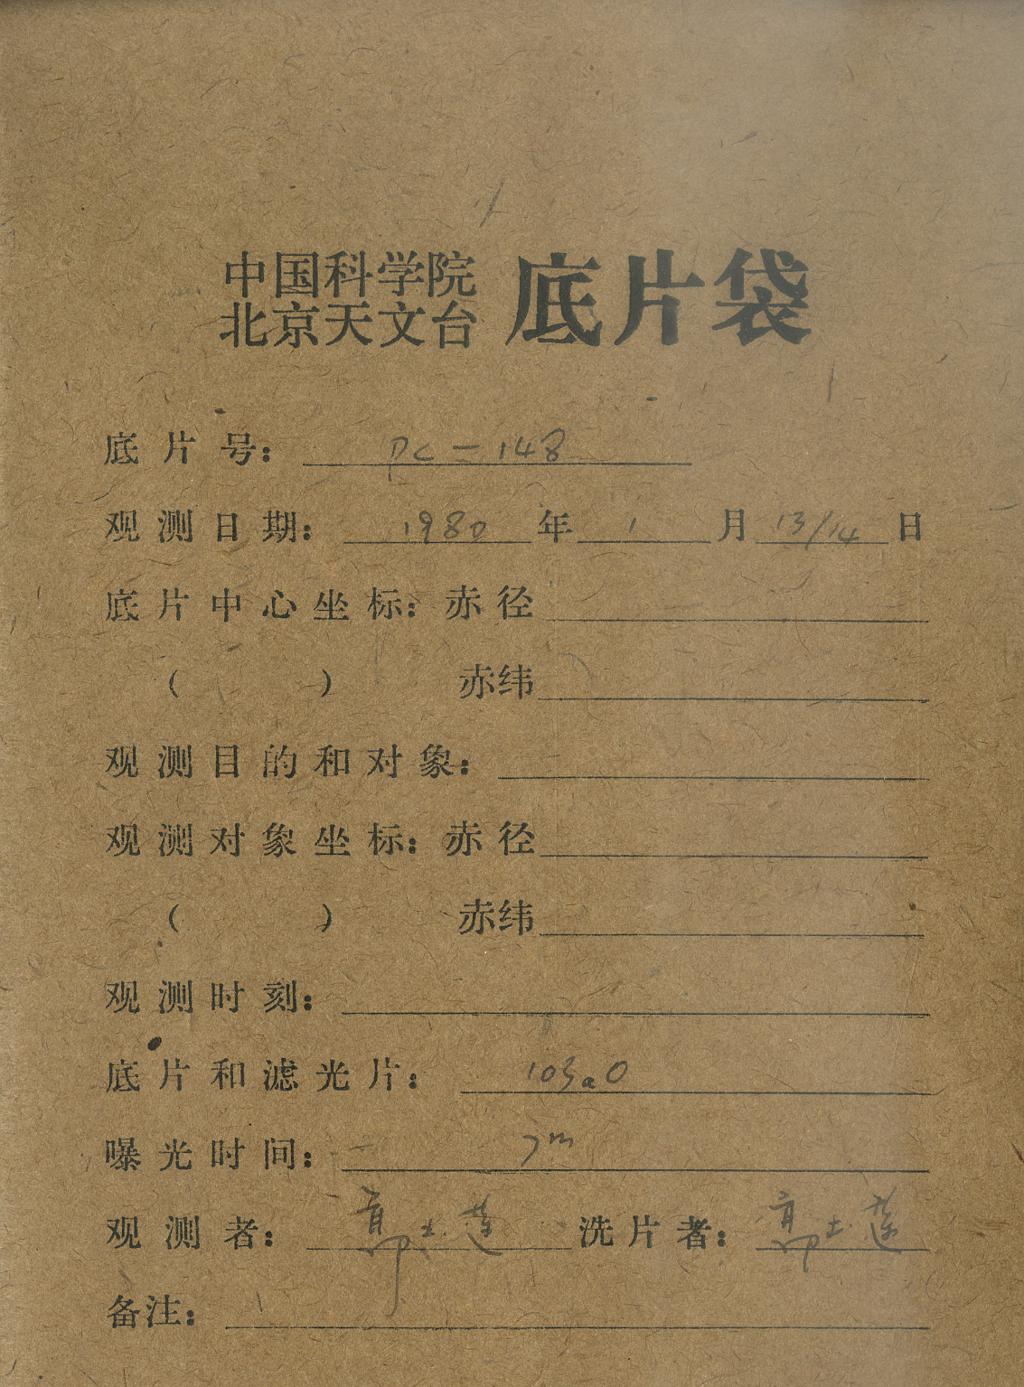 中国科学院
北京天文台 底片袋
底片号: PC-148
观测日期: 1980年1月13/14日
底片中心坐标: 赤径
( ) 赤纬
观测目的和对象:
观测对象坐标: 赤径
( ) 赤纬
观测时刻:
底片和滤光片: 103aO
曝光时间: 7m
观测者: 洗片者:
备注: